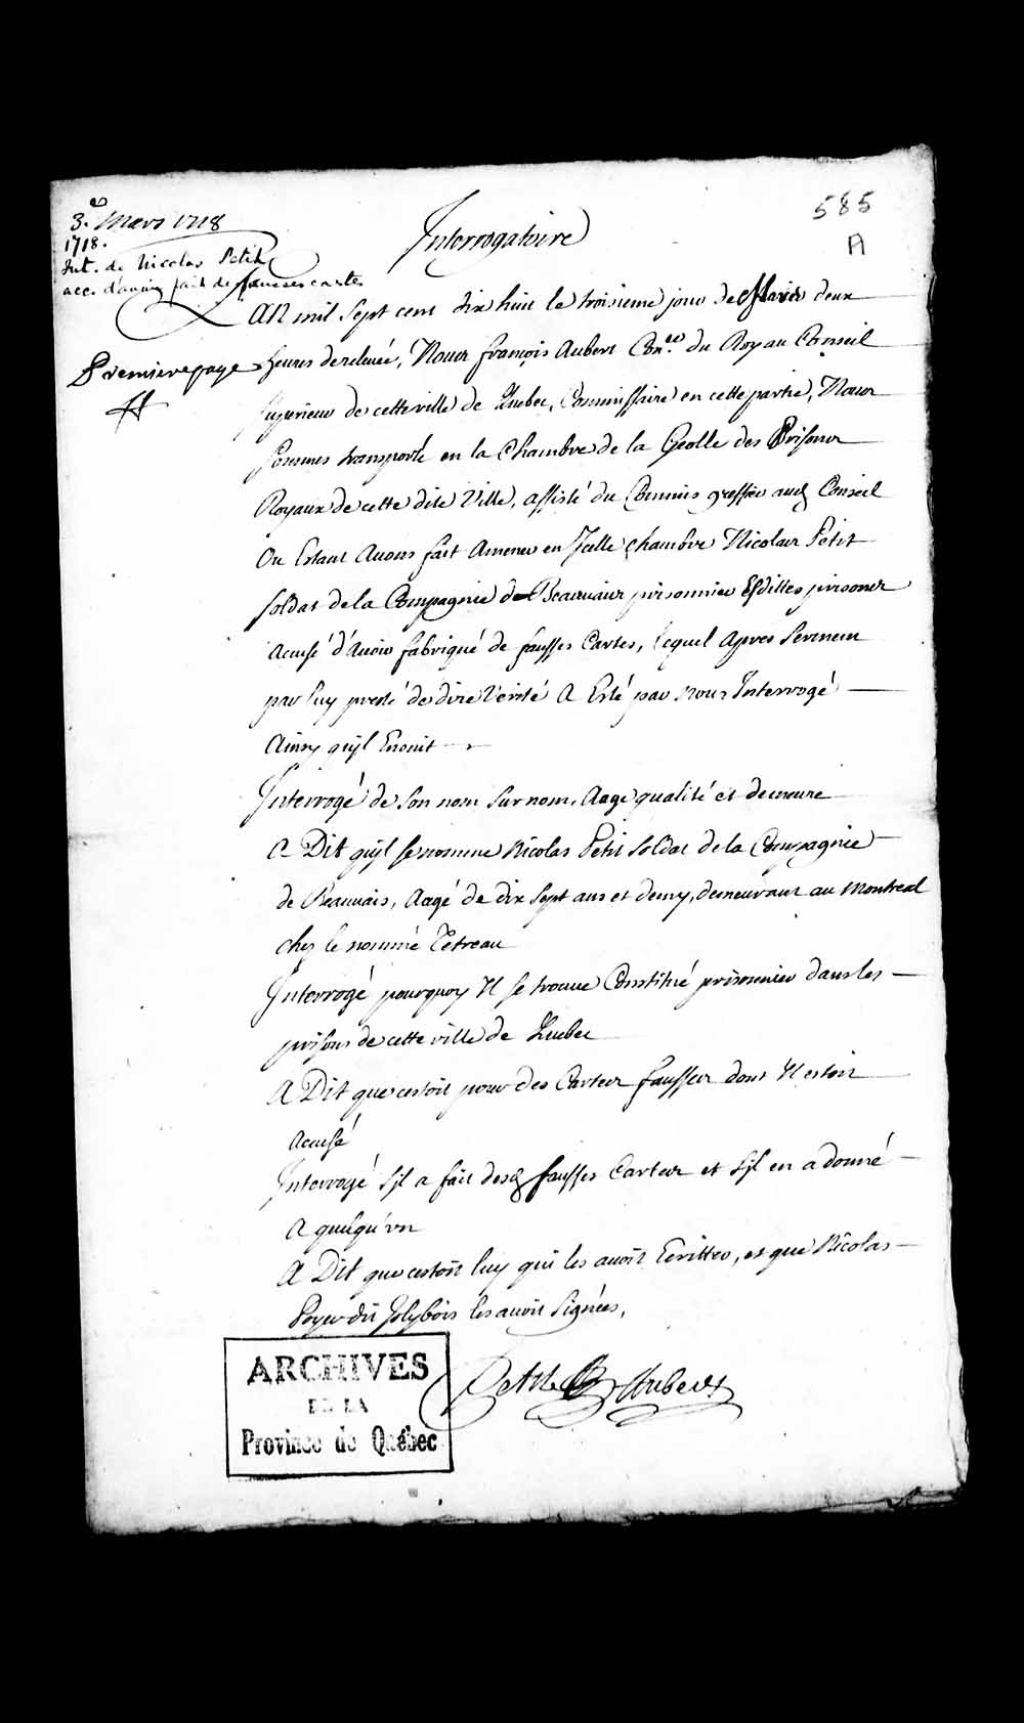 3.e Mars 1718
1718.
Int. de Nicolas Petit
acc. d'avoir fait de fausses cartes
585
A
Interrogatoire
Premiere page
LAN mil Sept cent dix huit le troisieme jour de Mars deux
heures de relevée, Nous françois Aubert Con.er du Roy au Conseil
Superieur de cette ville de Quebec, Commissaire en cette partie, Nous
sommes transporté en la Chambre de la Geolle des Prisons
Royaux de cette dite Ville, assisté du Commis greffier aud Conseil
Ou Estant Avons fait Amener en Jcelle chambre Nicolas Petit
soldat de la Compagnie de Beauvais prisonnier Esdittes prisons
Acusé d'Avoir fabriqué de fausses Cartes, lequel Apres Serment
par luy presté de dire Verité A Esté par nous Interrogé
Ainsy qujl Ensuit
Interrogé de Son nom Sur nom, Aage qualité et demeure
A Dit qujl se nomme Nicolas Petit soldat de la Compagnie
de Beauvais, Aagé de dix sept ans et demy, demeurant au Montreal
chez le nommé Tetreau
Interrogé pourquoy Il se trouve Constitué prisonnier dans les
prisons de cette ville de Quebec
A Dit que cestoit pour des Cartes fausses dont Il estoit
Acusé
Interrogé Sjl a fait desd fausses Cartes et Sjl en a donné
A quelqu'vn
A Dit que cestoit luy qui les avoit Ecrittes, et que Nicolas
Poyer dit Jolybois les avoit Signées,
Petit Aubert
ARCHIVES
DE LA
Province de Québec